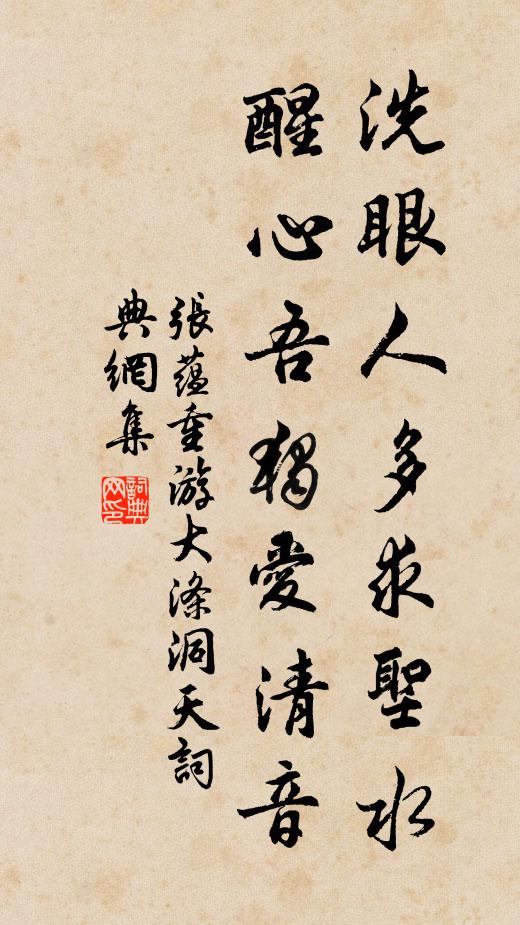 洗眼人多求聖水
醒心吾獨愛清音
張蘊重游大滌洞天詞
典網集
詞典網印